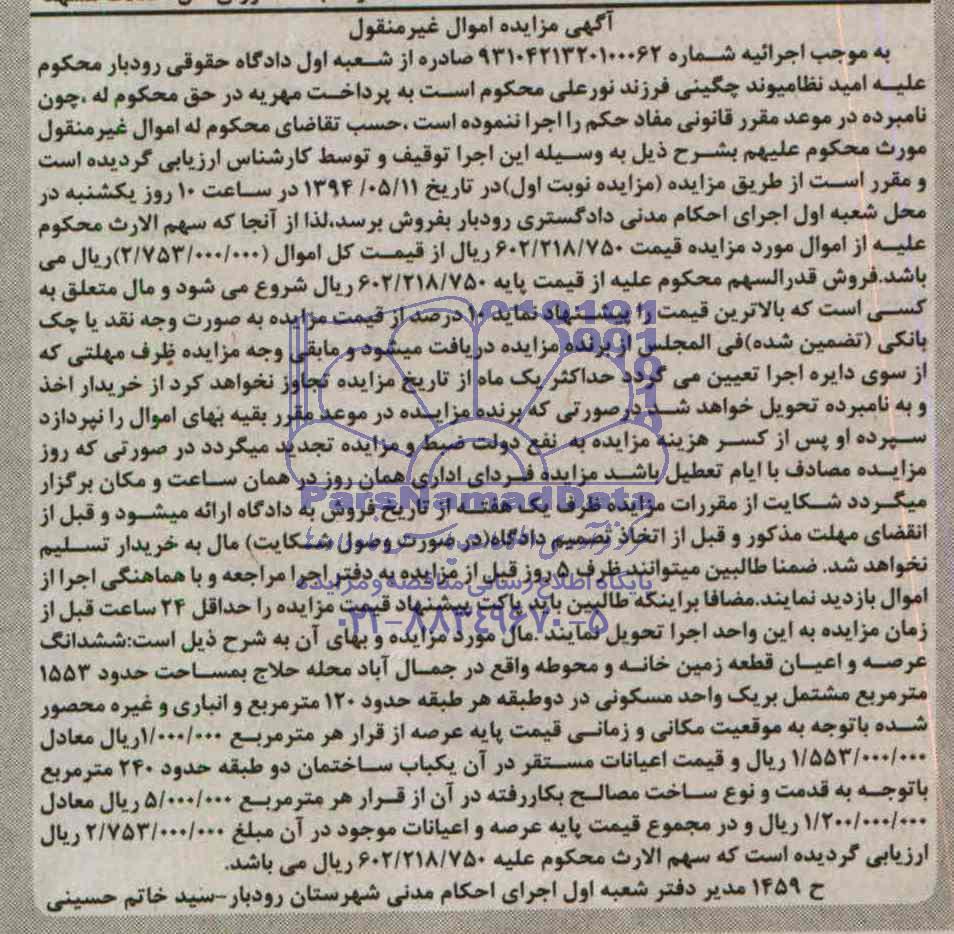 آگهی مزایده اموال غیرمنقول
به موجب اجرائیه شماره ۹۳۱۰۴۲۱۳۲۰۱۰۰۰۶۲ صادره از شعبه اول دادگاه حقوقی رودبار محکوم
علیه امید نظامیوند چگینی فرزند نورعلی محکوم است به پرداخت مهریه در حق محکوم له ،چون
نامبرده در موعد مقرر قانونی مفاد حکم را اجرا ننموده است ،حسب تقاضای محکوم له اموال غیرمنقول
مورث محکوم علیهم بشرح ذیل به وسیله این اجرا توقیف و توسط کارشناس ارزیابی گردیده است
و مقرر است از طریق مزایده (مزایده نوبت اول)در تاریخ ۰۵/۱۱/ ۱۳۹۴ در ساعت ۱۰ روز یکشنبه در
محل شعبه اول اجرای احکام مدنی دادگستری رودبار بفروش برسد،لذا از آنجا که سهم الارث محکوم
علیه از اموال مورد مزایده قیمت ۶۰۲/۲۱۸/۷۵۰ ریال از قیمت کل اموال (۲/۷۵۳/۰۰۰/۰۰۰)ریال می
باشد.فروش قدرالسهم محکوم علیه از قیمت پایه ۶۰۲/۲۱۸/۷۵۰ ریال شروع می شود و مال متعلق به
کسی است که بالاترین قیمت را پیشنهاد نماید ۱۰ درصد از قیمت مزایده به صورت وجه نقد یا چک
بانکی (تضمین شده)فی المجلس از برنده مزایده دریافت میشود و مابقی وجه مزایده ظرف مهلتی که
از سوی دایره اجرا تعیین می گردد حداکثر یک ماه از تاریخ مزایده تجاوز نخواهد کرد از خریدار اخذ
و به نامبرده تحویل خواهد شد درصورتی که برنده مزایده در موعد مقرر بقیه بهای اموال را نپردازد
سپرده او پس از کسر هزینه مزایده به نفع دولت ضبط و مزایده تجدید میگردد در صورتی که روز
مزایده مصادف با ایام تعطیل باشد مزایده فردای اداری همان روز در همان ساعت و مکان برگزار
میگردد شکایت از مقررات مزایده ظرف یک هفته از تاریخ فروش به دادگاه ارائه میشود و قبل از
انقضای مهلت مذکور و قبل از اتخاذ تصمیم دادگاه(در صورت وصول شکایت) مال به خریدار تسلیم
نخواهد شد. ضمنا طالبین میتوانند ظرف ۵ روز قبل از مزایده به دفتر اجرا مراجعه و با هماهنگی اجرا از
اموال بازدید نمایند.مضافا براینکه طالبین باید پاکت پیشنهاد قیمت مزایده را حداقل ۲۴ ساعت قبل از
زمان مزایده به این واحد اجرا تحویل نمایند .مال مورد مزایده و بهای آن به شرح ذیل است:ششدانگ
عرصه و اعیان قطعه زمین خانه و محوطه واقع در جمال آباد محله حلاج بمساحت حدود ۱۵۵۳
مترمربع مشتمل بریک واحد مسکونی در دوطبقه هر طبقه حدود ۱۲۰ مترمربع و انباری و غیره محصور
شده باتوجه به موقعیت مکانی و زمانی قیمت پایه عرصه از قرار هر مترمربع ۱/۰۰۰/۰۰۰ریال معادل
۱/۵۵۳/۰۰۰/۰۰۰ ریال و قیمت اعیانات مستقر در آن یکباب ساختمان دو طبقه حدود ۲۴۰ مترمربع
باتوجه به قدمت و نوع ساخت مصالح بکاررفته در آن از قرار هر مترمربع ۵/۰۰۰/۰۰۰ ریال معادل
۱/۲۰۰/۰۰۰/۰۰۰ ریال و در مجموع قیمت پایه عرصه و اعیانات موجود در آن مبلغ ۲/۷۵۳/۰۰۰/۰۰۰ ریال
ارزیابی گردیده است که سهم الارث محکوم علیه ۶۰۲/۲۱۸/۷۵۰ ریال می باشد.
ح ۱۴۵۹ مدیر دفتر شعبه اول اجرای احکام مدنی شهرستان رودبار-سید خاتم حسینی
ParsNamadData
پایگاه اطلاع رسانی مناقصه و مزایده
۰۲۱-۸۸۳۴۹۶۷۰-۵